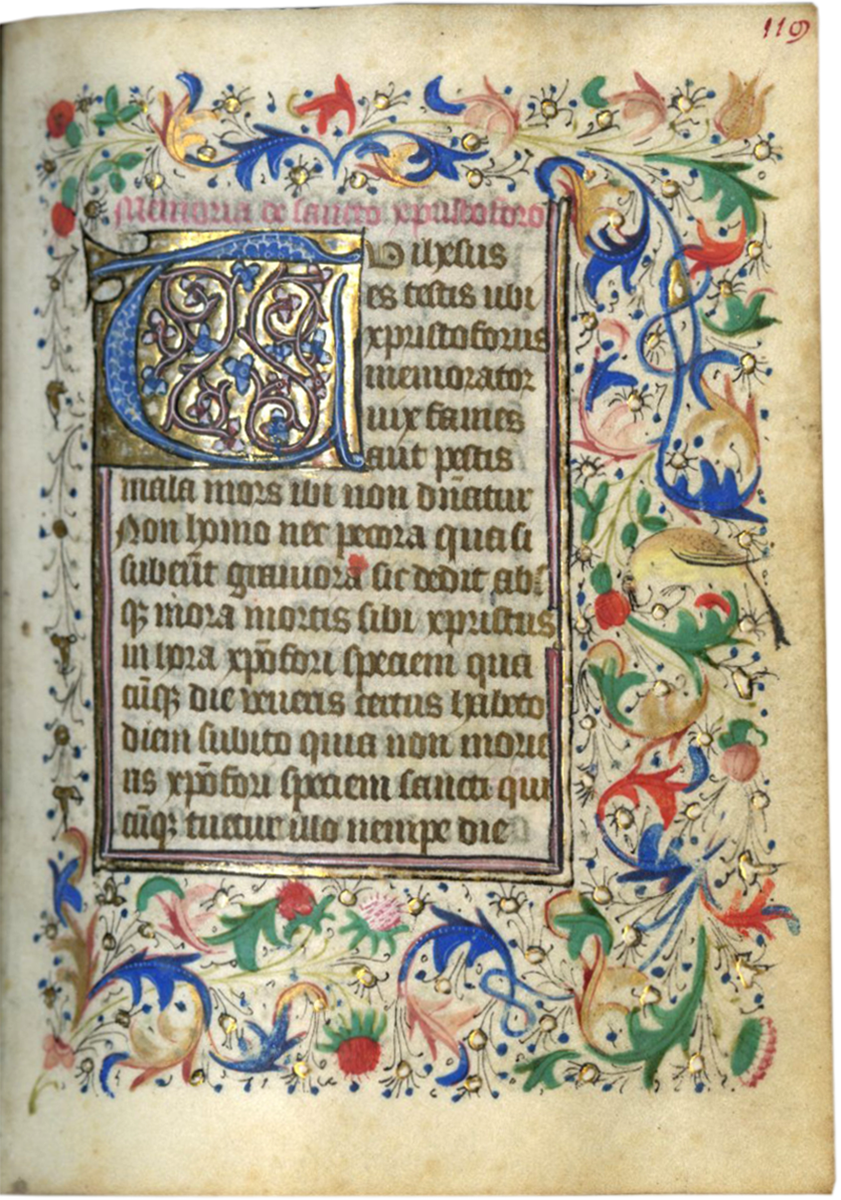 119
Memoria de sancto xpristoforo
TU ihesus
es testis ubi
xpristoforus
memorator
uix fames
aut pestis
mala mors ibi non dn̄atur
Non homo nec pecora qua si
subeūt grauiora sic dedit abs
qꝫ mora mortis sibi xpristus
in hora xp̄ofori speciem qua
cūqꝫ die ueneris certus habeto
diem subito quia non morie
ris xp̄ofori speciem sancti qui
cūqꝫ tuetur illo nempe die